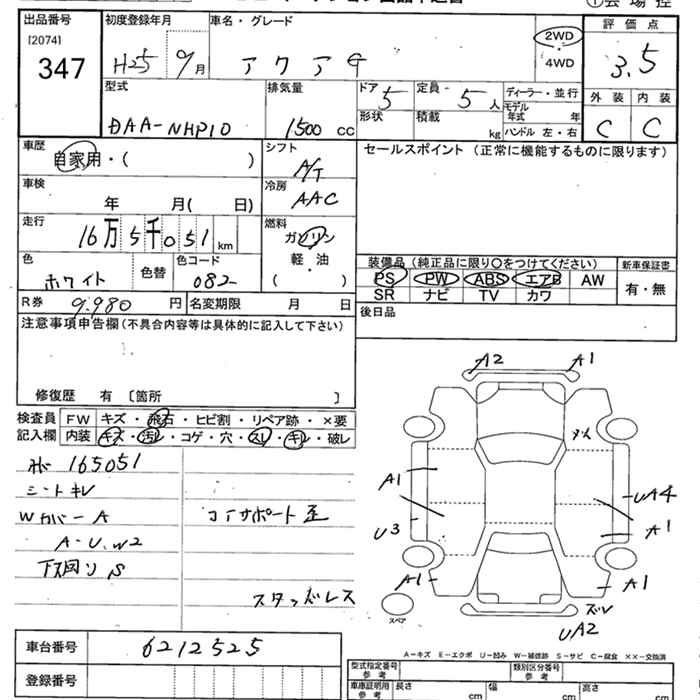 ①会場控
出品番号
[2074]
347
初度登録年月
H25 9月
車名・グレード
アクア G
2WD
・
4WD
評価点
3.5
型式
DAA-NHP10
排気量
1500 cc
ドア
5
形状
定員
5 人
積載
kg
ディーラー・並行
モデル
年式 年
ハンドル 左・右
外装 内装
C C
車歴
自家用・( )
シフト
A/T
セールスポイント (正常に機能するものに限ります)
車検
年 月( 日)
冷房
AAC
走行
16万5千051 km
燃料
ガソリン
軽・油
( )
色
ホワイト
色替
色コード
082
装備品 (純正品に限り○をつけてください)
PS PW ABS エアB AW
SR ナビ TV カワ
新車保証書
有・無
R券 9.980 円
名変期限 月 日
後日品
注意事項申告欄(不具合内容等は具体的に記入して下さい)
修復歴 有 〔箇所 〕
検査員
記入欄
FW キズ・飛石・ヒビ割・リペア跡・×要
内装 キズ・汚レ・コゲ・穴・スレ・キレ・破レ
165051
シートキレ
Wカバー A
A・U.W2
下回り S
コアサポート歪
スタッドレス
A2 A1
A1
U3
A1
UA4
A1
A1
UA2
スペア
A－キズ E－エクボ U－凹み W－補修跡 S－サビ C－腐食 ××－交換済
車台番号 6212525
登録番号
型式指定番号
参考
類別区分番号
参考
車庫証明用
参考
長さ cm
幅 cm
高さ cm